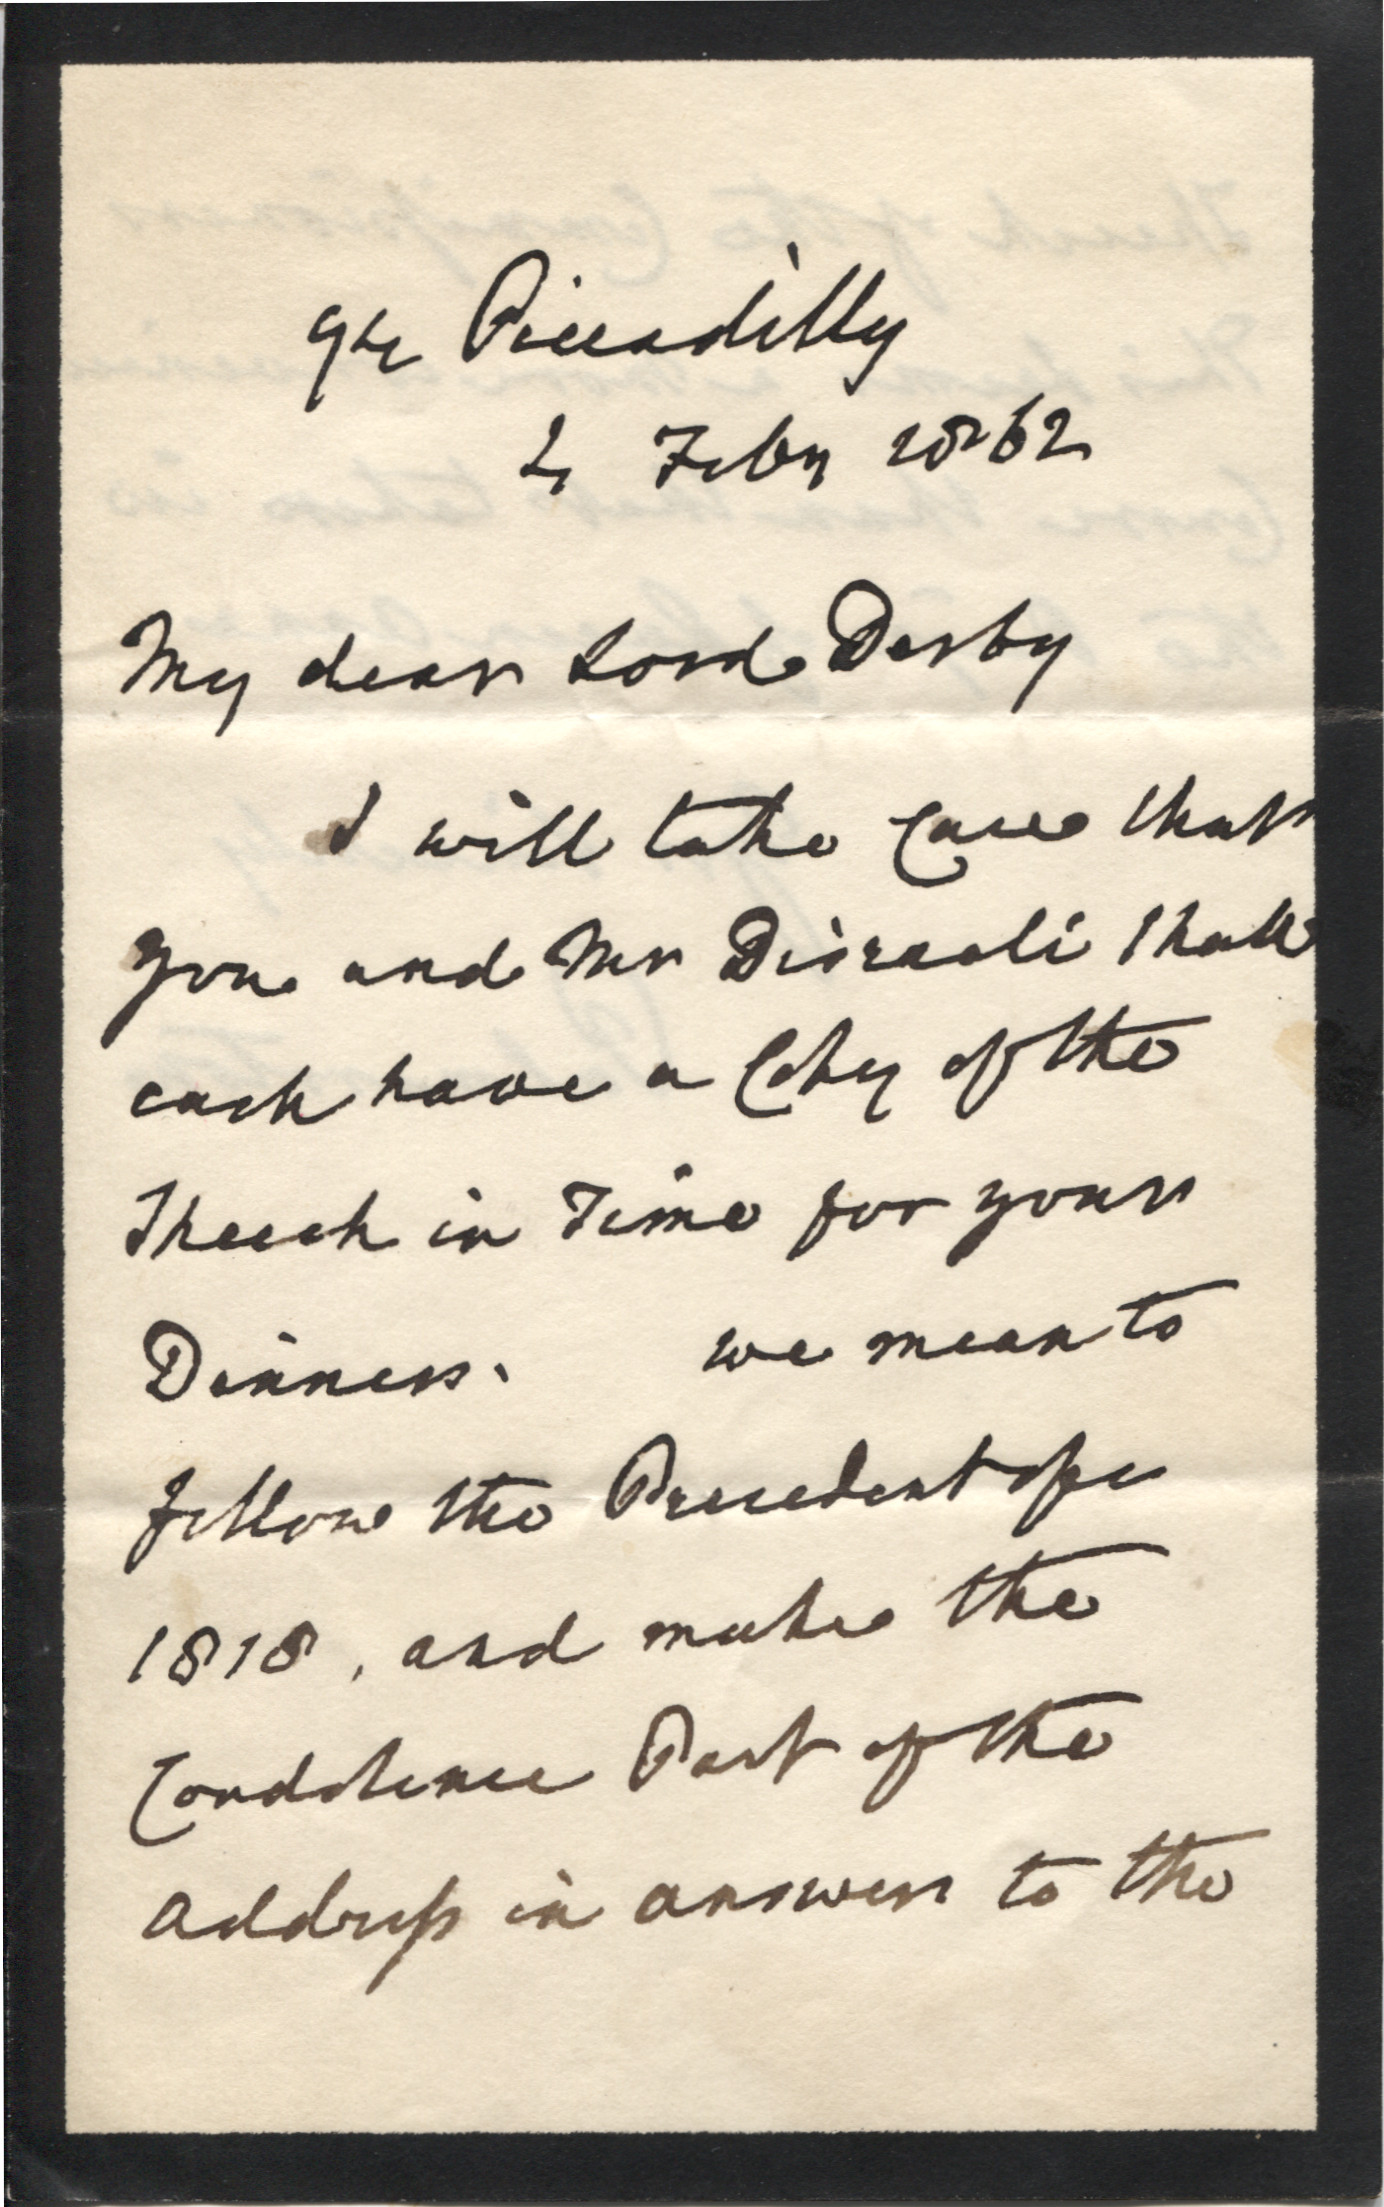 94 Piccadilly
4 Feby 1862
My dear Lord Derby
I will take Care that
you and Mr Disraeli shall
each have a Copy of the
Speech in Time for your
Dinners. we mean to
follow the Precedent of
1818, and make the
Condolence Part of the
address in answer to the